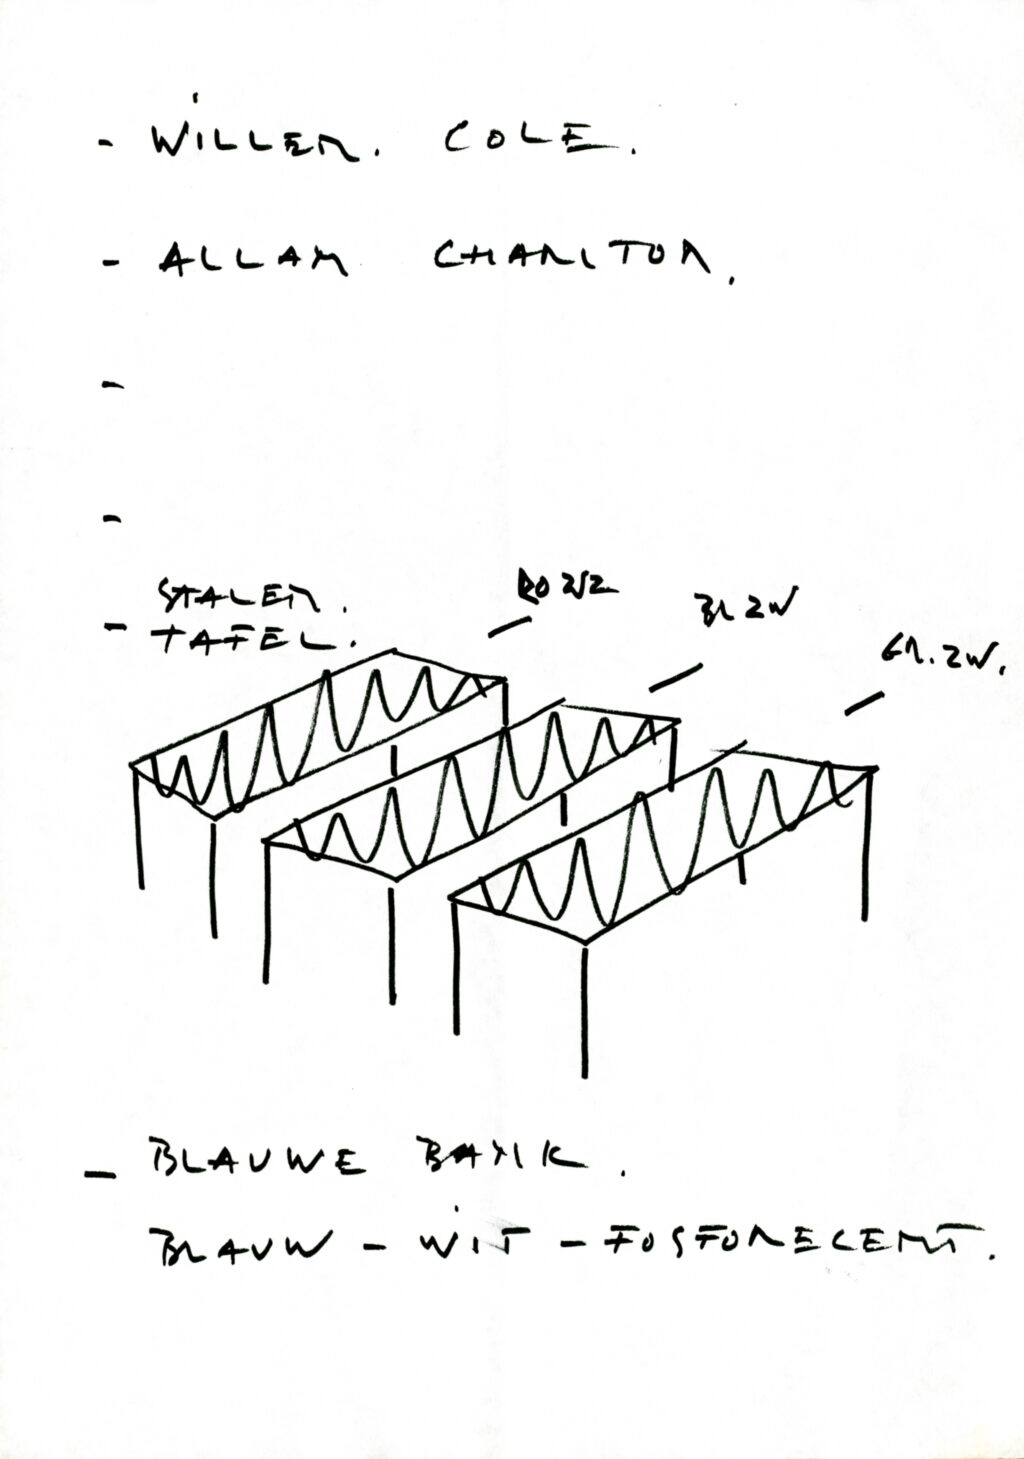 - WILLEM. COLE.
- ALLAN CHARLTON.
-
-
STALEN.
- TAFEL.
BL ZW
GR. ZW.
- BLAUWE BANK.
BLAUW - WIT - FOSFORECENT.